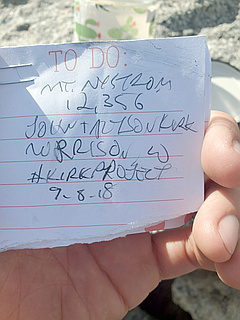 TO DO:
MT. NYSTROM
12,356
JOHN + ALYSON KIRK
MORRISON, CO
#KIRKPROJECT
9-8-18